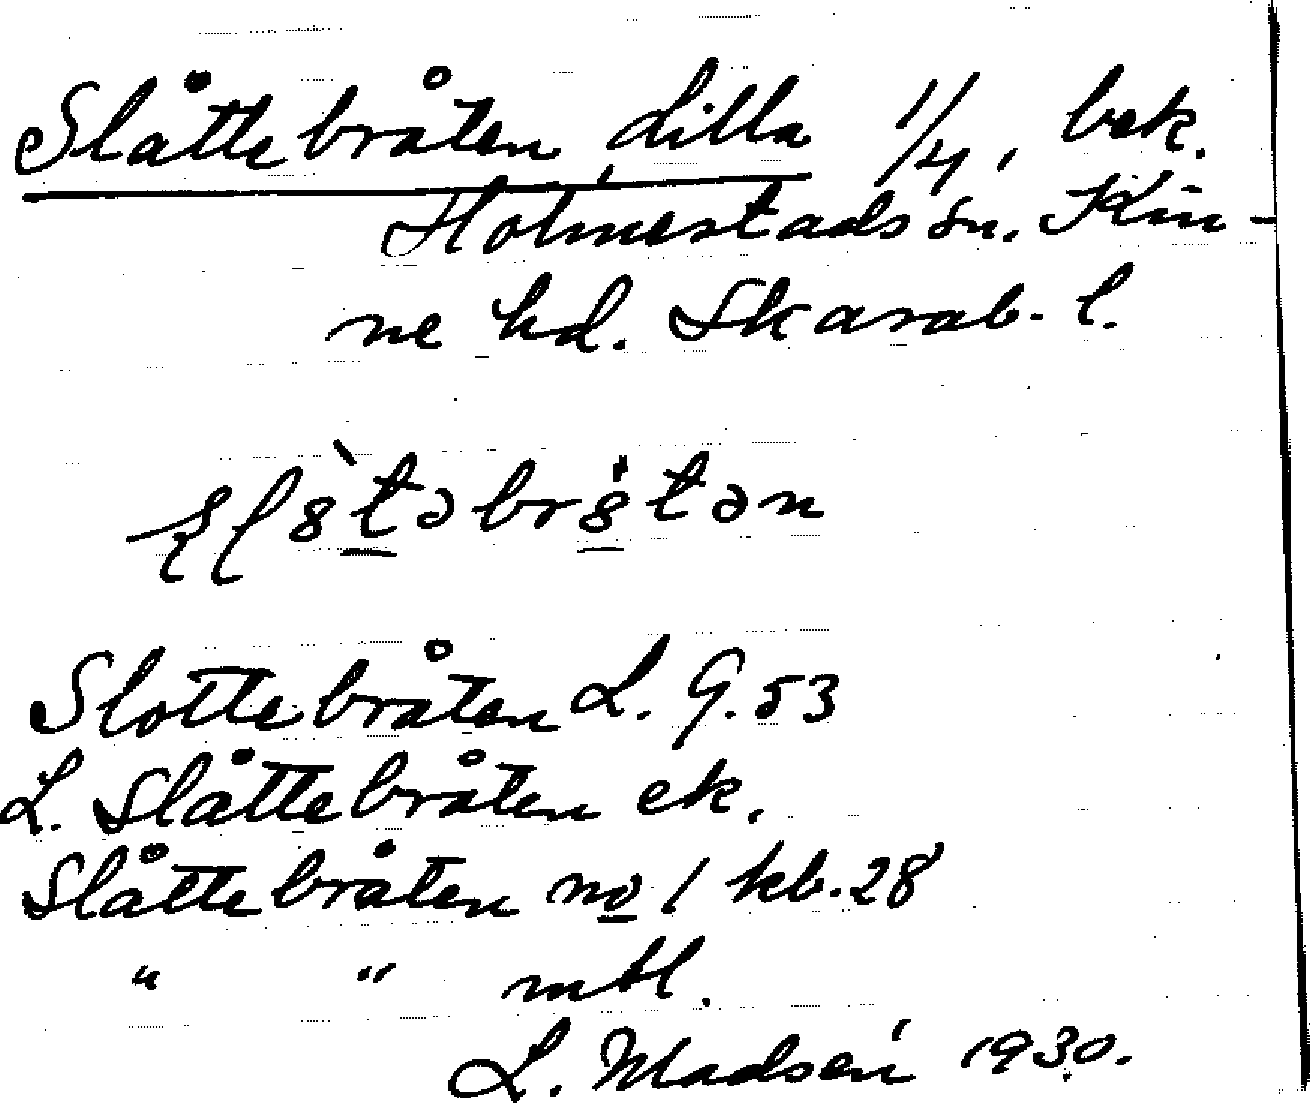 Slåttebråten, Lilla 1/4, bek.
Holmestads sn. Kin-
ne hd. Skarab. l.
Slottebråten L. G. 53
L. Slåttebråten ek.
Slåttebråten no 1 kb. 28
" " mtl.
L. Madsén 1930.